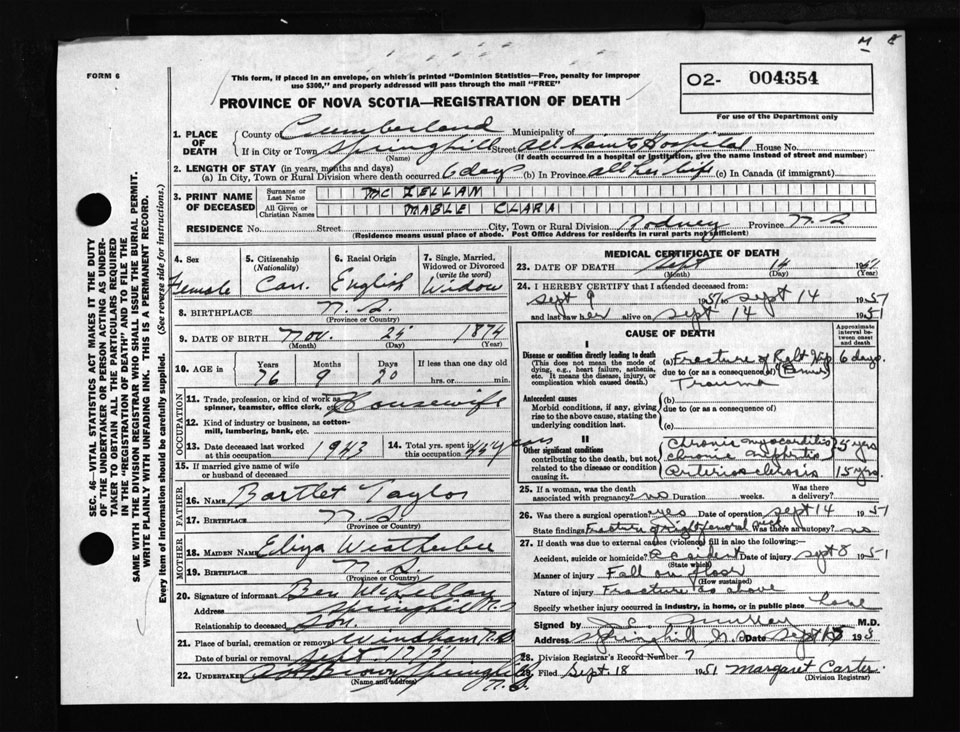 M E
FORM 6
This form, if placed in an envelope, on which is printed "Dominion Statistics—Free, penalty for improper
use $300," and properly addressed will pass through the mail "FREE"
O2- 004354
For use of the Department only
PROVINCE OF NOVA SCOTIA—REGISTRATION OF DEATH
SEC. 46—VITAL STATISTICS ACT MAKES IT THE DUTY
OF THE UNDERTAKER OR PERSON ACTING AS UNDER-
TAKER TO OBTAIN ALL THE PARTICULARS REQUIRED
IN THE "REGISTRATION OF DEATH" AND TO FILE THE
SAME WITH THE DIVISION REGISTRAR WHO SHALL ISSUE THE BURIAL PERMIT.
WRITE PLAINLY WITH UNFADING INK. THIS IS A PERMANENT RECORD.
Every item of information should be carefully supplied. (See reverse side for instructions.)
1. PLACE OF DEATH County of Cumberland Municipality of
If in City or Town Springhill Street All Saints Hospital House No.
(Name) (If death occurred in a hospital or institution, give the name instead of street and number)
2. LENGTH OF STAY (in years, months and days)
(a) In City, Town or Rural Division where death occurred 6 days (b) In Province all her life (c) In Canada (if immigrant)
3. PRINT NAME OF DECEASED Surname or Last Name MC LELLAN
All Given or Christian Names MABLE CLARA
RESIDENCE No. Street City, Town or Rural Division Rodney Province N.S.
(Residence means usual place of abode. Post Office Address for residents in rural parts not sufficient)
4. Sex Female
5. Citizenship (Nationality) Can.
6. Racial Origin English
7. Single, Married, Widowed or Divorced (write the word) Widow
8. BIRTHPLACE N.S.
(Province or Country)
9. DATE OF BIRTH Nov. 25 1874
(Month) (Day) (Year)
10. AGE Years 76 Months 9 Days 20 If less than one day old
hrs. or min.
OCCUPATION
11. Trade, profession, or kind of work as
spinner, teamster, office clerk, etc. Housewife
12. Kind of industry or business, as cotton-
mill, lumbering, bank, etc.
13. Date deceased last worked at this occupation 1943
14. Total yrs. spent in this occupation 45 years
15. If married give name of wife
or husband of deceased
FATHER
16. NAME Bartlet Taylor
17. BIRTHPLACE N.S.
(Province or Country)
MOTHER
18. MAIDEN NAME Eliza Weatherbee
19. BIRTHPLACE N.S.
(Province or Country)
20. Signature of informant Ben McLellan
Address Springhill N.S.
Relationship to deceased Son.
21. Place of burial, cremation or removal Windham N.S.
Date of burial or removal Sept. 17/51
22. UNDERTAKER Brown Springhill
(Name and address) N.S.
MEDICAL CERTIFICATE OF DEATH
23. DATE OF DEATH Sept 14 1951
(Month) (Day) (Year)
24. I HEREBY CERTIFY that I attended deceased from:
Sept 9 1951 to Sept 14 1951
and last saw her alive on Sept 14 1951
CAUSE OF DEATH
Approximate interval between onset and death
I
Disease or condition directly leading to death
(This does not mean the mode of
dying, e.g., heart failure, asthenia,
etc. It means the disease, injury, or
complication which caused death.)
(a) Fracture of Right Hip 6 days
due to (or as a consequence of) (Femur)
Trauma
Antecedent causes
Morbid conditions, if any, giving
rise to the above cause, stating the
underlying condition last.
(b)
due to (or as a consequence of)
(c)
II
Other significant conditions
contributing to the death, but not
related to the disease or condition
causing it.
Chronic myocarditis 5 yrs
Chronic nephritis
Arteriosclerosis 15 yrs
25. If a woman, was the death
associated with pregnancy? no Duration weeks. Was there a delivery?
26. Was there a surgical operation? yes Date of operation Sept 14 1951
State findings Fracture of right femoral neck Was there an autopsy? no
27. If death was due to external causes (violence) fill in also the following:—
Accident, suicide or homicide? accident Date of injury Sept 8 1951
(State which)
Manner of injury Fall on floor
(How sustained)
Nature of injury Fracture as above
Specify whether injury occurred in industry, in home, or in public place home
Signed by Murray M.D.
Address Springhill N.S. Date Sept 195
28. Division Registrar's Record Number 7
29. Filed Sept. 18 1951 Margaret Carter.
(Division Registrar)